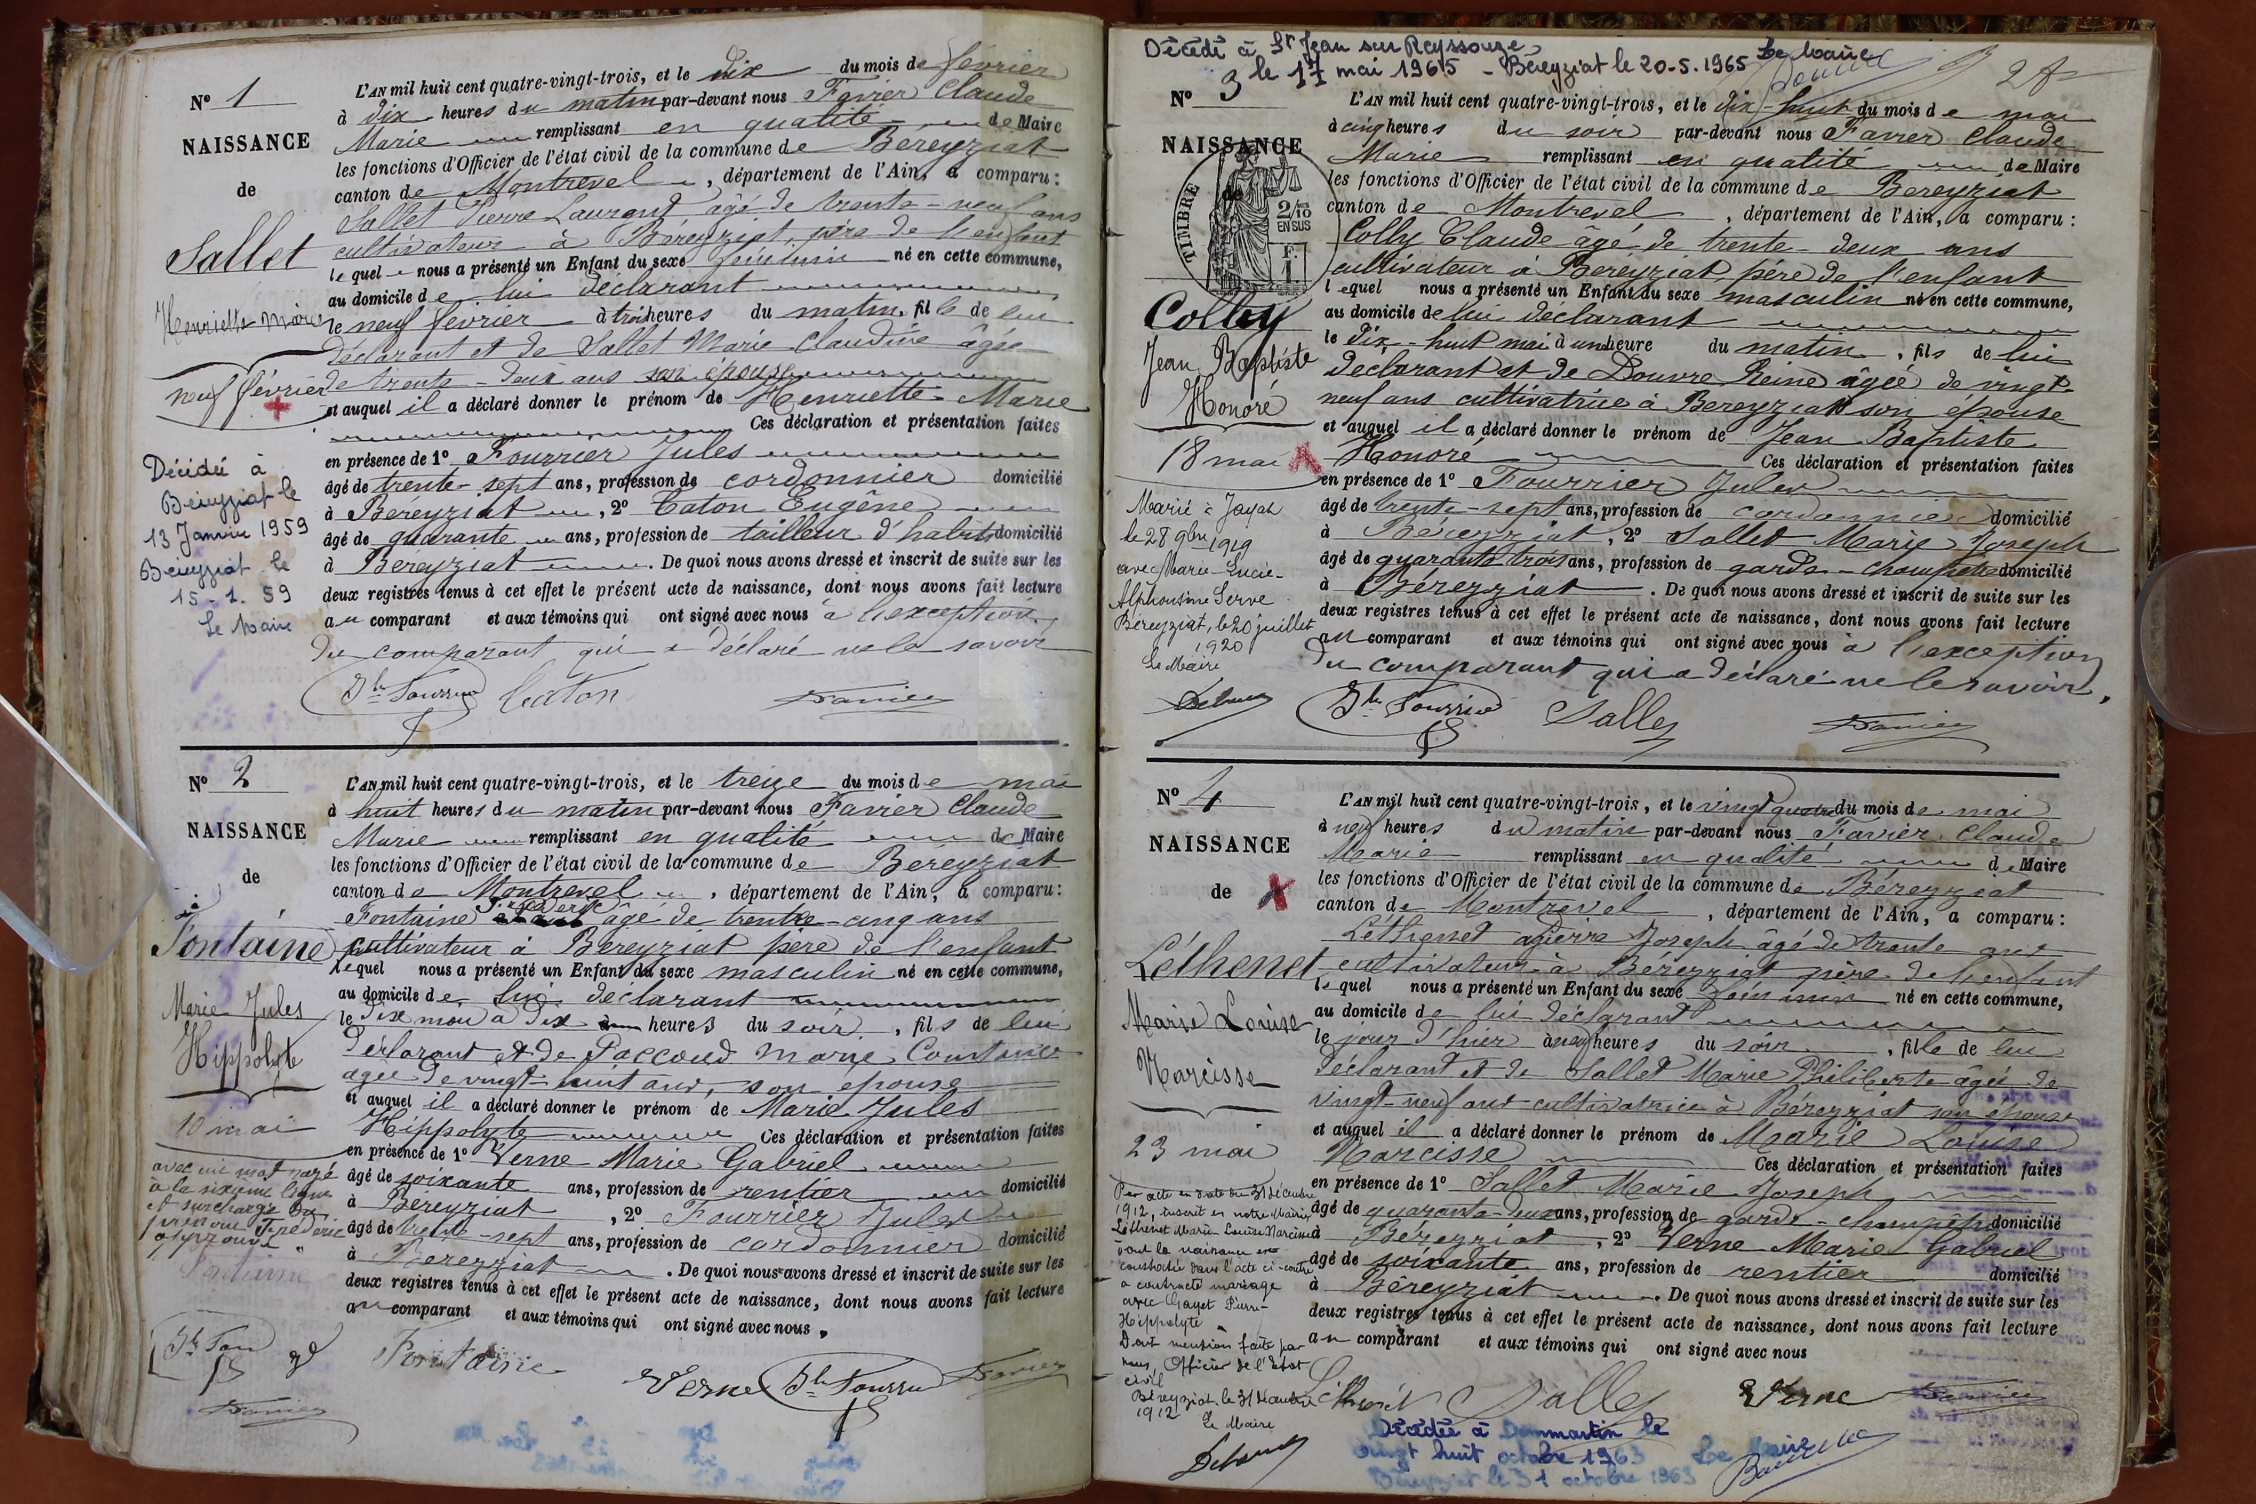 N° 1
NAISSANCE
de
Sallet
Henriette Marie
neuf février
Décédée à
Béreyziat le
13 Janvier 1959
Béreyziat le
15-1.59
Le Maire
L'AN mil huit cent quatre-vingt-trois, et le dix du mois de février
à dix heures du matin par-devant nous Favier Claude
Marie remplissant en qualité de Maire
les fonctions d'Officier de l'état civil de la commune de Béreyziat
canton de Montrevel, département de l'Ain, a comparu :
Sallet Pierre Laurent âgé de trente-neuf ans
cultivateur à Béreyziat, père de l'enfant
lequel nous a présenté un Enfant du sexe féminin né en cette commune,
au domicile de lui déclarant
le neuf février à trois heures du matin, fille de lui
déclarant et de Sallet Marie Claudine âgée
de trente-deux ans son épouse
et auquel il a déclaré donner le prénom de Henriette Marie
Ces déclaration et présentation faites
en présence de 1° Fourrier Jules
âgé de trente-sept ans, profession de cordonnier domicilié
à Bereyziat, 2° Caton Eugène
âgé de quarante ans, profession de tailleur d'habits domicilié
à Béreyziat. De quoi nous avons dressé et inscrit de suite sur les
deux registres tenus à cet effet le présent acte de naissance, dont nous avons fait lecture
au comparant et aux témoins qui ont signé avec nous à l'exception
du comparant qui a déclaré ne le savoir
Jls Fourrier Caton Favier
N° 2
NAISSANCE
de
Fontaine
Marie Jules
Hippolyte
10 mai
avec un mot rayé
à la sixième ligne
et surcharge du
prénom Frédéric
approuvé
Fontaine
Favier
L'AN mil huit cent quatre-vingt-trois, et le treize du mois de mai
à huit heures du matin par-devant nous Favier Claude
Marie remplissant en qualité de Maire
les fonctions d'Officier de l'état civil de la commune de Béreyziat
canton de Montrevel, département de l'Ain, a comparu :
Fontaine Frédéric âgé de trente-cinq ans
cultivateur à Bereyziat père de l'enfant
lequel nous a présenté un Enfant du sexe masculin né en cette commune,
au domicile de lui déclarant
le dix mai à dix heures du soir, fils de lui
déclarant et de Paccoud Marie Constance
agée de vingt-huit ans, son épouse
et auquel il a déclaré donner le prénom de Marie Jules
Hippolyte Ces déclaration et présentation faites
en présence de 1° Verne Marie Gabriel
âgé de soixante ans, profession de rentier domicilié
à Béreyziat, 2° Fourrier Jules
âgé de trente-sept ans, profession de cordonnier domicilié
à Bereyziat. De quoi nous avons dressé et inscrit de suite sur les
deux registres tenus à cet effet le présent acte de naissance, dont nous avons fait lecture
au comparant et aux témoins qui ont signé avec nous.
Fontaine Verne Jls Fourrier Favier
Décédé à St Jean sur Reyssouze
le 17 mai 1965 - Béreyziat le 20-5.1965 Le Maire
28
N° 3
NAISSANCE
de
TIMBRE
2/10 EN SUS
F. 1
Colly
Jean Baptiste
Honoré
18 mai
Marié à Jayat
le 28 9bre 1919
avec Marie-Lucie-
Alphonsine Serve
Béreyziat, le 20 juillet
1920
Le Maire
L'AN mil huit cent quatre-vingt-trois, et le dix-huit du mois de mai
à cinq heures du soir par-devant nous Favier Claude
Marie remplissant en qualité de Maire
les fonctions d'Officier de l'état civil de la commune de Bereyziat
canton de Montrevel, département de l'Ain, a comparu :
Colly Claude âgé de trente-deux ans
cultivateur à Béreyziat, père de l'enfant
lequel nous a présenté un Enfant du sexe masculin né en cette commune,
au domicile de lui déclarant
le dix-huit mai à une heure du matin, fils de lui
déclarant et de Douvre Reine âgée de vingt-
neuf ans cultivatrice à Bereyziat son épouse
et auquel il a déclaré donner le prénom de Jean Baptiste
Honoré Ces déclaration et présentation faites
en présence de 1° Fourrier Jules
âgé de trente-sept ans, profession de cordonnier domicilié
à Béreyziat, 2° Sallet Marie Joseph
âgé de quarante trois ans, profession de garde-champêtre domicilié
à Béreyziat. De quoi nous avons dressé et inscrit de suite sur les
deux registres tenus à cet effet le présent acte de naissance, dont nous avons fait lecture
au comparant et aux témoins qui ont signé avec nous à l'exception
du comparant qui a déclaré ne le savoir.
Jls Fourrier Sallet Favier
N° 4
NAISSANCE
de
Léthenet
Marie Louise
Narcisse
23 mai
Par acte en date du 31 décembre
1912, inscrit en notre Mairie
Léthenet Marie Louise Narcisse
dont la naissance est
constatée dans l'acte ci-contre
a contracté mariage
avec Gayet Pierre-
Hippolyte
Dont mention faite par
nous, Officier de l'Etat
civil
Béreyziat le 31 décembre
1912
Le Maire
L'AN mil huit cent quatre-vingt-trois, et le vingt quatre du mois de mai
à neuf heures du matin par-devant nous Favier Claude
Marie remplissant en qualité de Maire
les fonctions d'Officier de l'état civil de la commune de Béreyziat
canton de Montrevel, département de l'Ain, a comparu :
Léthenet Pierre Joseph âgé de trente ans
cultivateur à Béreyziat père de l'enfant
lequel nous a présenté un Enfant du sexe féminin né en cette commune,
au domicile de lui déclarant
le jour d'hier à neuf heures du soir, fille de lui
déclarant et de Sallet Marie Philiberte âgée de
vingt-neuf ans cultivatrice à Béreyziat son épouse
et auquel il a déclaré donner le prénom de Marie Louise
Narcisse Ces déclaration et présentation faites
en présence de 1° Sallet Marie Joseph
âgé de quarante-deux ans, profession de garde-champêtre domicilié
à Béreyziat, 2° Verne Marie Gabriel
âgé de soixante ans, profession de rentier domicilié
à Béreyziat. De quoi nous avons dressé et inscrit de suite sur les
deux registres tenus à cet effet le présent acte de naissance, dont nous avons fait lecture
au comparant et aux témoins qui ont signé avec nous
Léthenet Sallet Verne Favier
Décédée à Dommartin le
vingt huit octobre 1963 Le Maire
Béreyziat le 31 octobre 1963